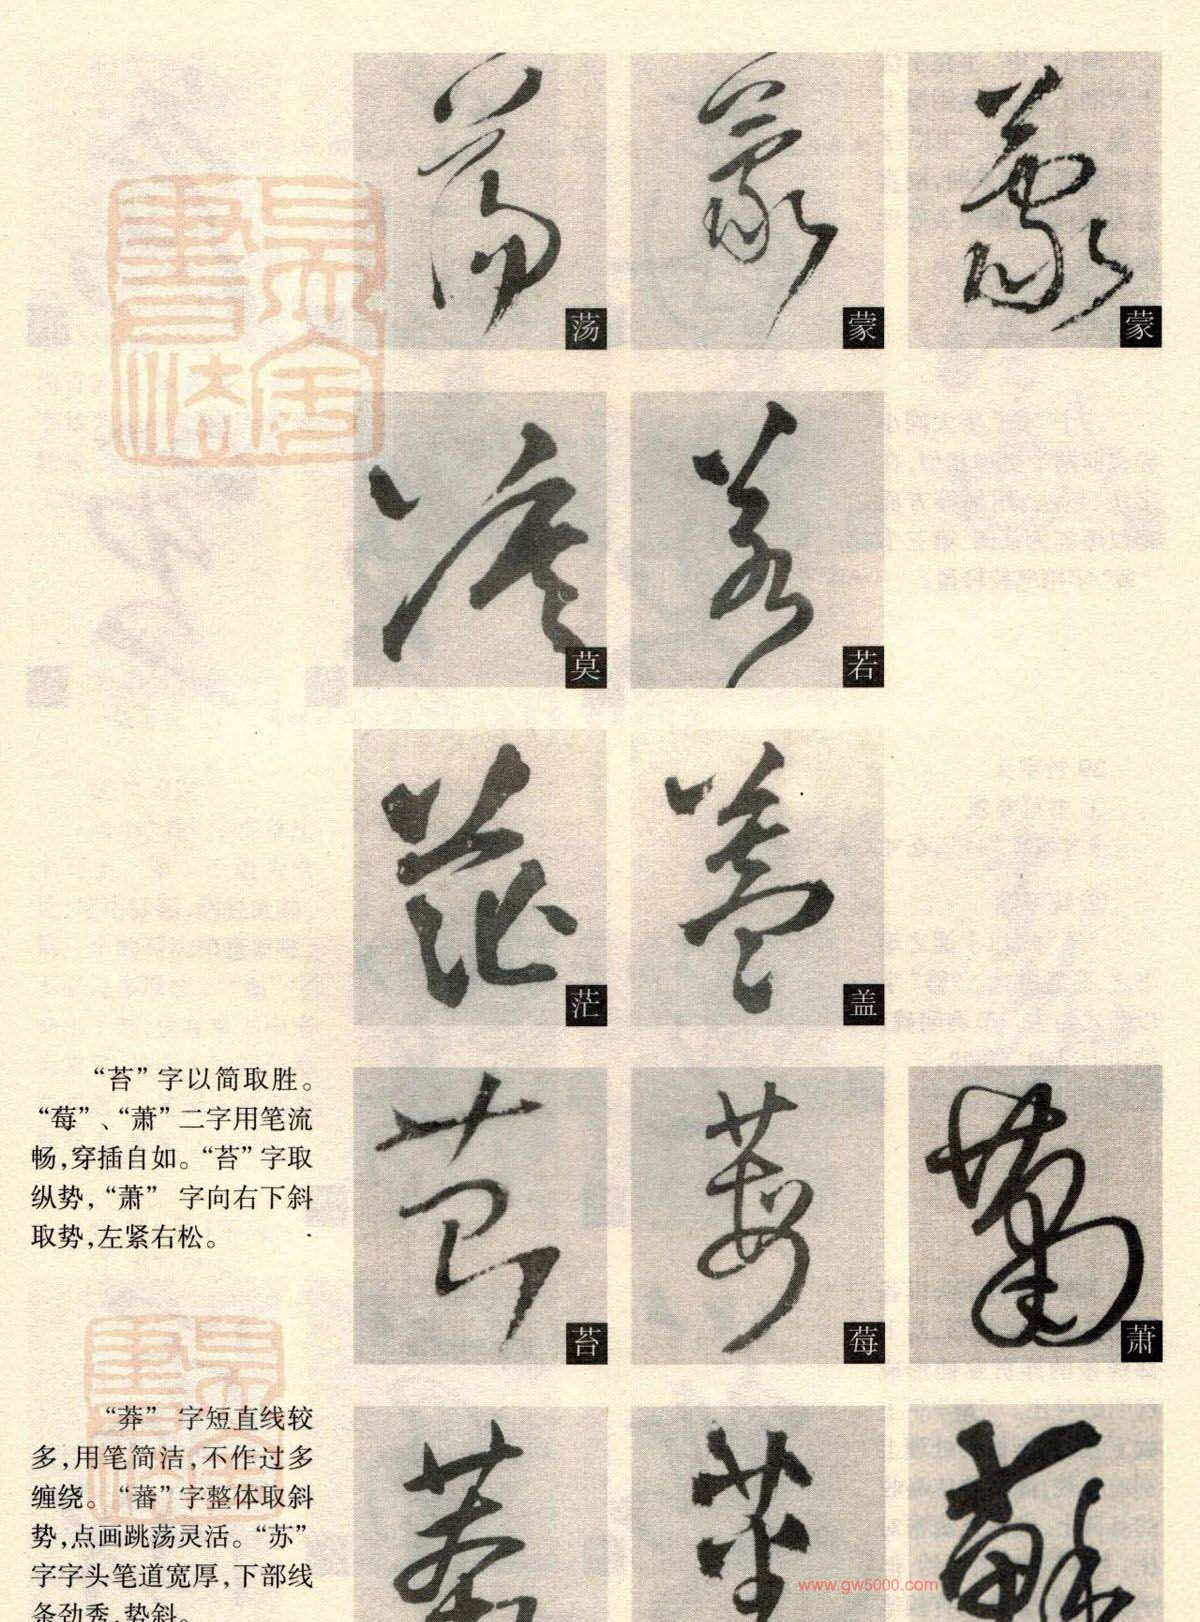 荡
蒙
蒙
莫
若
茫
盖
“苔”字以简取胜。
“莓”、“萧”二字用笔流
畅,穿插自如。“苔”字取
纵势,“萧” 字向右下斜
取势,左紧右松。
苔
莓
萧
“莽” 字短直线较
多,用笔简洁,不作过多
缠绕。“蕃”字整体取斜
势,点画跳荡灵活。“苏”
字字头笔道宽厚,下部线
条劲秀,势斜。
www.gw5000.com